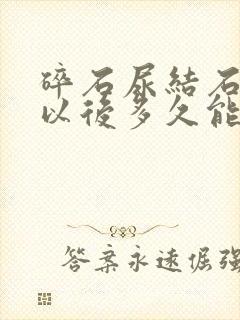 碎石尿結石
以後多久能
答案永遠倔強